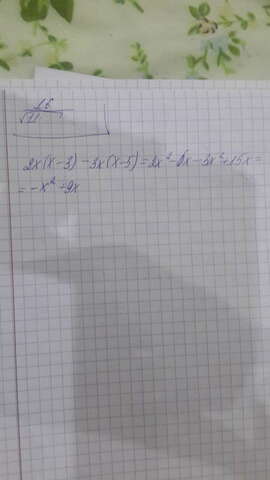 16
2x(x-3)-3x(x-5)=2x²-6x-3x²+15x=
=-x²+9x